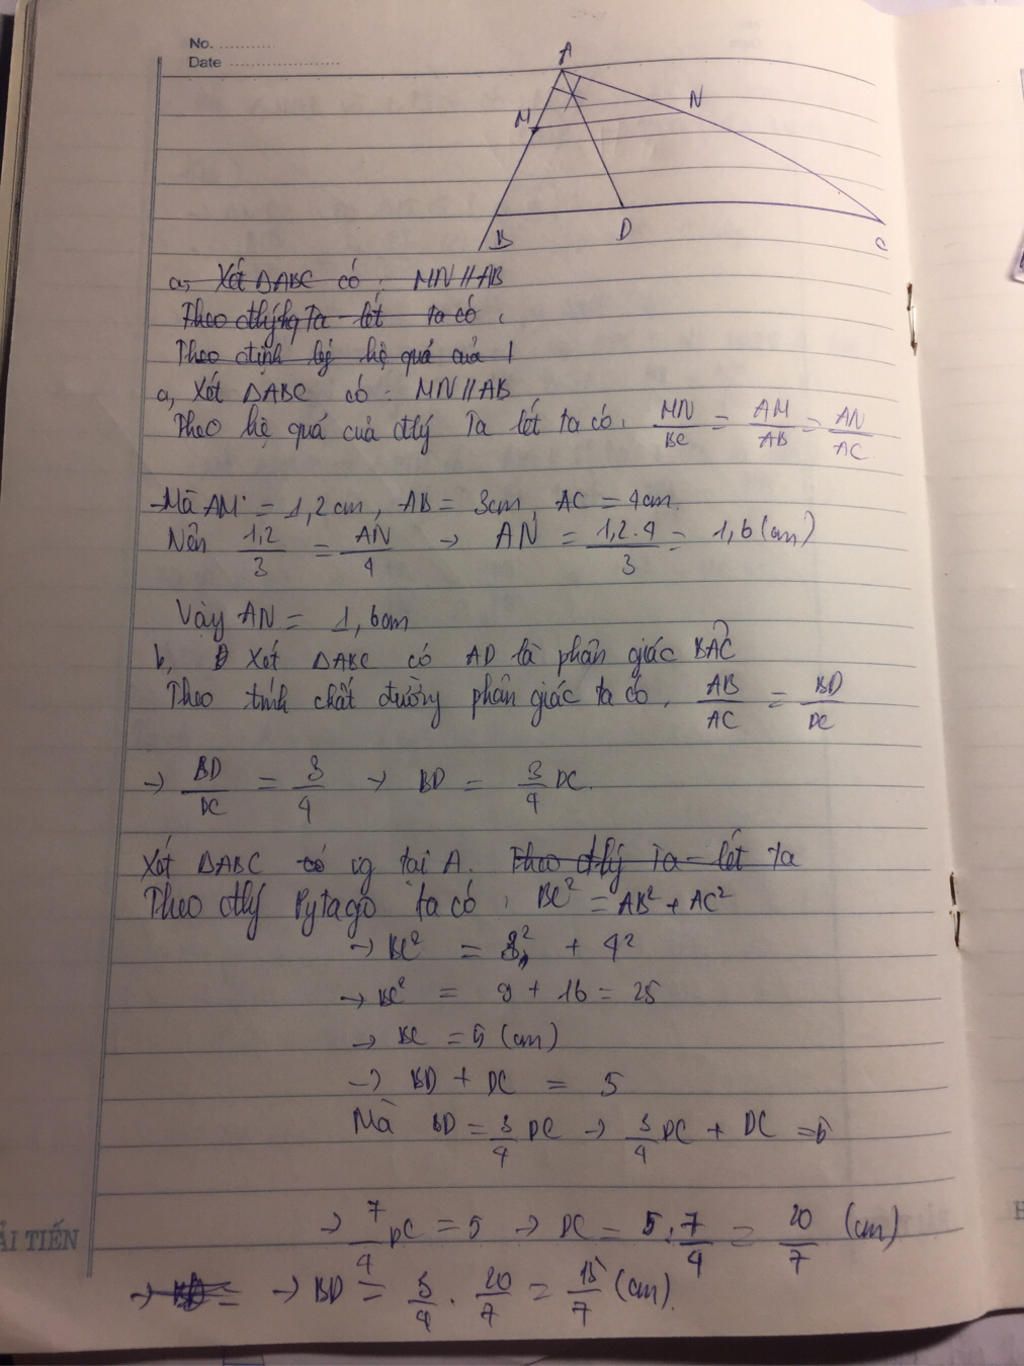 No. ...........
Date ......................
A
M
N
B
D
C
a, Xét ΔABC có : MN // AB
Theo đlý Ta-lét ta có :
Theo định lý hệ quả của
a, Xét ΔABC có : MN // AB
Theo hệ quả của đlý Ta lét ta có : MN/BC = AM/AB = AN/AC
Mà AM = 1,2 cm, AB = 3cm, AC = 4cm.
Nên 1,2/3 = AN/4 → AN = 1,2.4/3 = 1,6 (cm)
Vậy AN = 1,6cm
b, Xét ΔABC có AD là phân giác BAC
Theo tính chất đường phân giác ta có, AB/AC = BD/DC
→ BD/DC = 3/4 → BD = 3/4 DC.
Xét ΔABC có vg tại A. Theo đlý Ta-lét Ta
Theo đlý Pytago ta có : BC² = AB² + AC²
→ BC² = 3² + 4²
→ BC² = 9 + 16 = 25
→ BC = 5 (cm)
→ BD + DC = 5
Mà BD = 3/4 DC → 3/4 DC + DC = 5
→ 7/4 DC = 5 → DC = 5 : 7/4 = 20/7 (cm)
→ BD = → BD = 3/4 . 20/7 = 15/7 (cm).
ẢI TIẾN